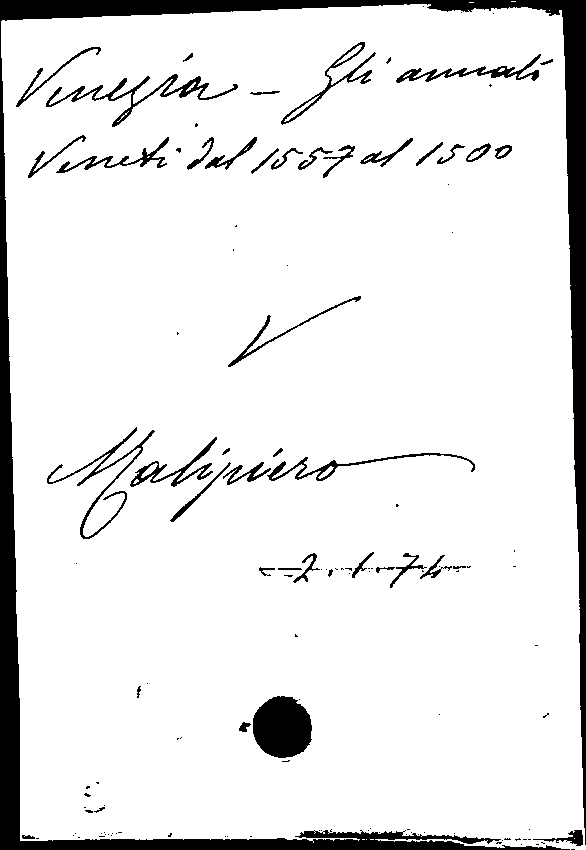 Venezia – Gli annali
Veneti dal 1557 al 1500
V
Malipiero
2.1.74